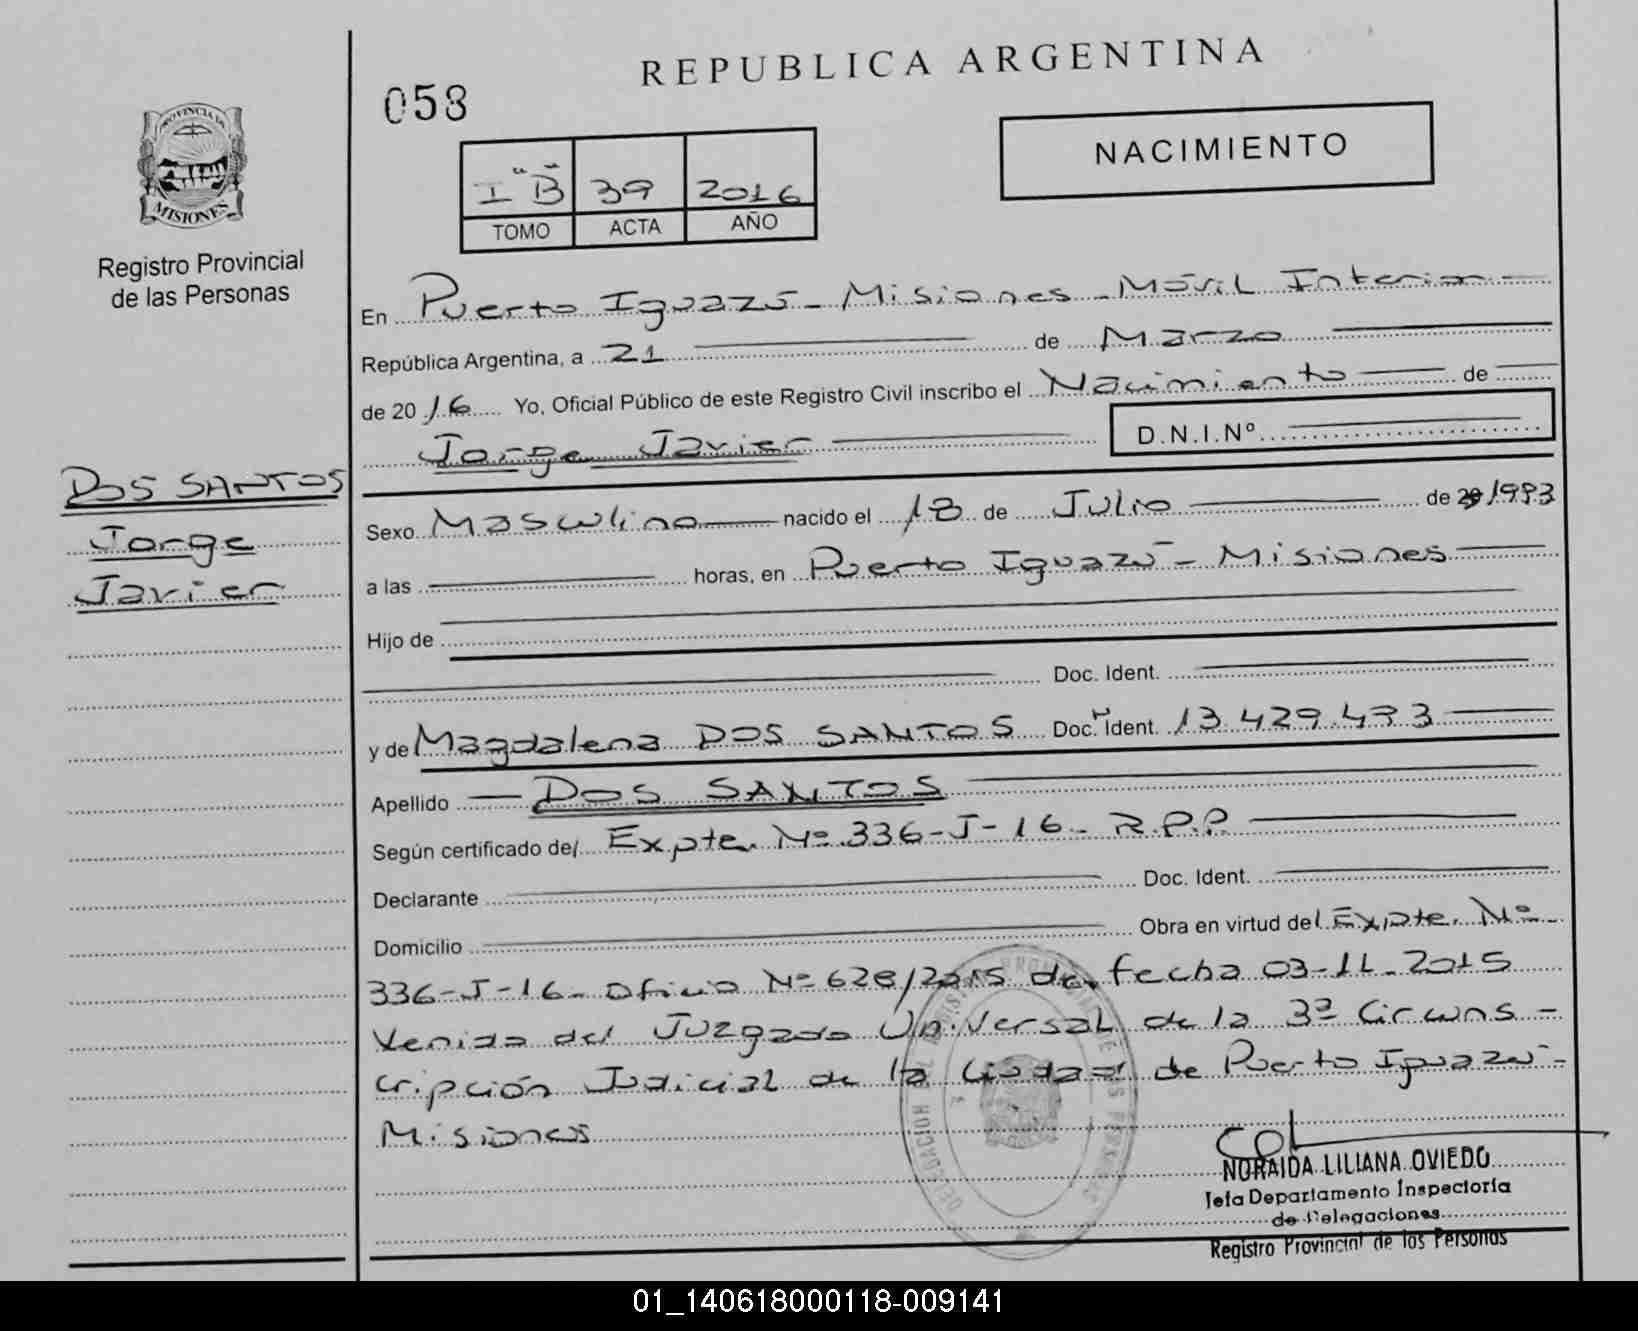 REPUBLICA ARGENTINA
058
NACIMIENTO
PROVINCIA DE
MISIONES
Registro Provincial
de las Personas
I "B" 39 2016
TOMO ACTA AÑO
En Puerto Iguazú - Misiones - Móvil Interior
República Argentina, a 21 de Marzo
de 2016 Yo, Oficial Público de este Registro Civil inscribo el Nacimiento de
Jorge Javier D.N.I.Nº
DOS SANTOS
Jorge
Javier
Sexo Masculino nacido el 18 de Julio de 20 1993
a las horas, en Puerto Iguazú - Misiones
Hijo de
Doc. Ident.
y de Magdalena DOS SANTOS Doc. Ident. 13.429.473
Apellido DOS SANTOS
Según certificado del Expte. Nº 336-J-16- R.P.P
Declarante Doc. Ident.
Domicilio Obra en virtud del Expte. Nº
336-J-16- Oficio Nº 628/2015 de fecha 03-11-2015
Venido del Juzgado Universal de la 3ª Circuns-
cripción Judicial de la Ciudad de Puerto Iguazú-
Misiones
NORAIDA LILIANA OVIEDO
Jefa Departamento Inspectoría
de Delegaciones
Registro Provincial de las Personas
01_140618000118-009141